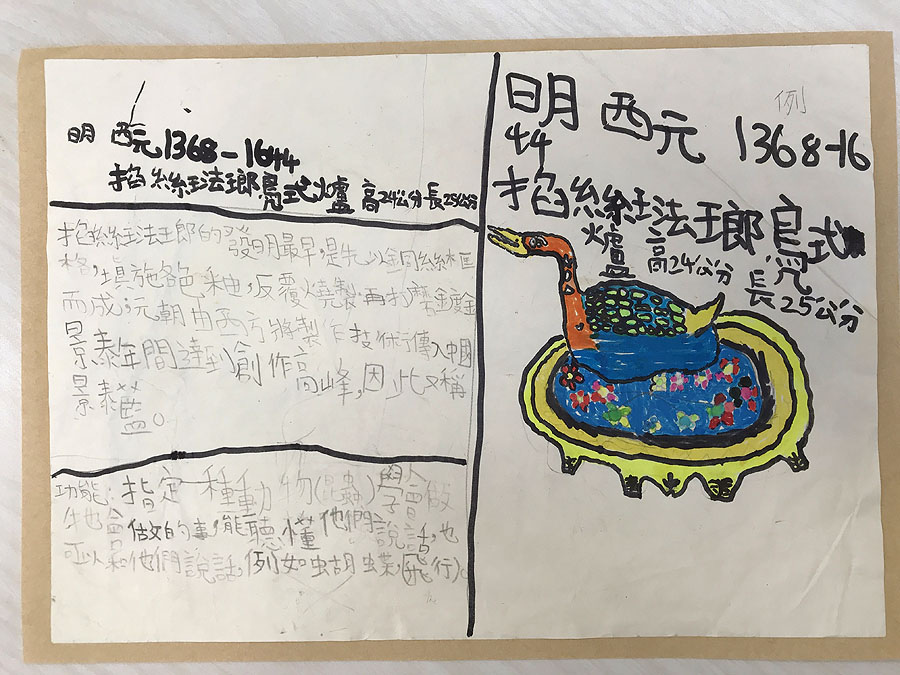 明 西元1368-1644
掐絲琺瑯鳧式爐 高24公分長25公分
掐絲琺瑯的發明最早,是先以銅絲框
格,填施各色釉,反覆燒製,再打磨鍍金
而成,元朝由西方將製作技術傳入中國
景泰年間達到創作高峰,因此又稱
景泰藍。
功能:指定一種動物(昆蟲)學會做
牠會做的事,能聽懂他們說話,也
可以和他們說話,例如蝴蝶(飛行)。
例
明 西元 1368-16
44
掐絲琺瑯鳧式
爐 高24公分
長25公分